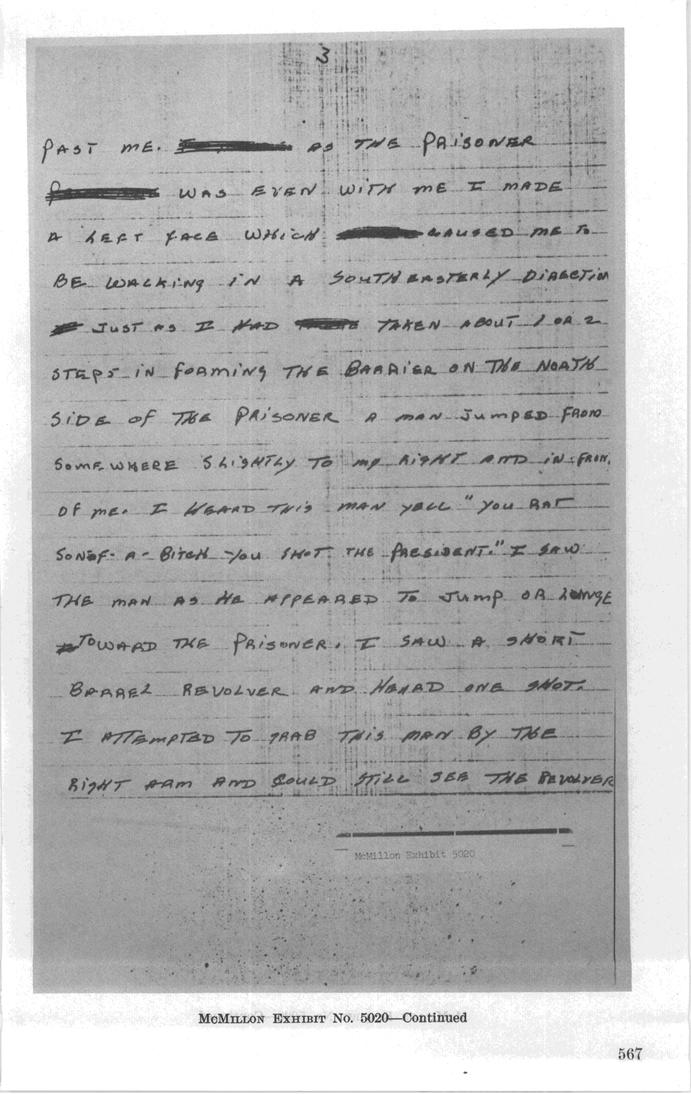 3
PAST ME. AS THE PRISONER
WAS EVEN WITH ME I MADE
A LEFT FACE WHICH CAUSED ME TO
BE WALKING IN A SOUTHEASTERLY DIRECTION
JUST AS I HAD TAKEN ABOUT 1 OR 2
STEPS IN FORMING THE BARRIER ON THE NORTH
SIDE OF THE PRISONER A MAN JUMPED FROM
SOMEWHERE SLIGHTLY TO MY RIGHT AND IN FRON.
OF ME. I HEARD THIS MAN YELL "YOU RAT
SONOF-A-BITCH YOU SHOT THE PRESIDENT." I SAW
THE MAN AS HE APPEARED TO JUMP OR LUNGE
TOWARD THE PRISONER. I SAW A SHORT
BARREL REVOLVER AND HEARD ONE SHOT.
I ATTEMPTED TO GRAB THIS MAN BY THE
RIGHT ARM AND COULD STILL SEE THE REVOLVER
McMillon Exhibit 5020
McMILLON EXHIBIT No. 5020—Continued
567